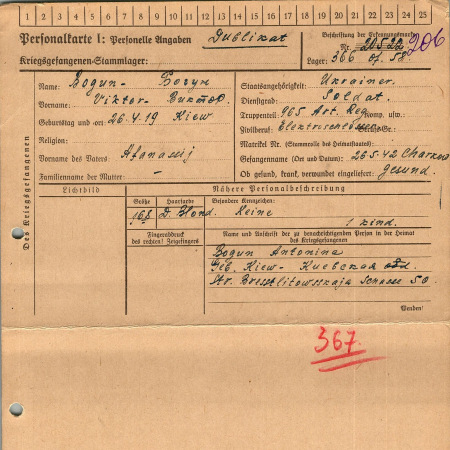 1 2 3 4 5 6 7 8 9 10 11 12 13 14 15 16 17 18 19 20 21 22 23 24 25
Personalkarte I: Personelle Angaben Dublikat
Kriegsgefangenen-Stammlager:
Beschriftung der Erkennungsmarke
Nr. 20522 206
Lager: 366 Of. 58.
Des Kriegsgefangenen
Name: Bogun - Богун
Vorname: Viktor - Виктор
Geburtstag und -ort: 26.4.19 Kiew
Religion:
Vorname des Vaters: Afanassij
Familienname der Mutter: -
Staatsangehörigkeit: Ukrainer
Dienstgrad: Soldat.
Truppenteil: 965 Art. Reg. Komp. usw.:
Zivilberuf:
Matrikel Nr. (Stammrolle des Heimatstaates):
Gefangennahme (Ort und Datum): 26.5.42 Charkow
Ob gesund, krank, verwundet eingeliefert: gesund.
Lichtbild
Nähere Personalbeschreibung
Größe Haarfarbe Besondere Kennzeichen:
168 D. Blond. Keine
1 Kind.
Fingerabdruck
des rechten! Zeigefingers
Name und Anschrift der zu benachrichtigenden Person in der Heimat
des Kriegsgefangenen
Bogun Antonina
Geb. Kiew - Киевская обл.
Str. Brestlitowsskaja Schasse 50.
Wenden!
367.